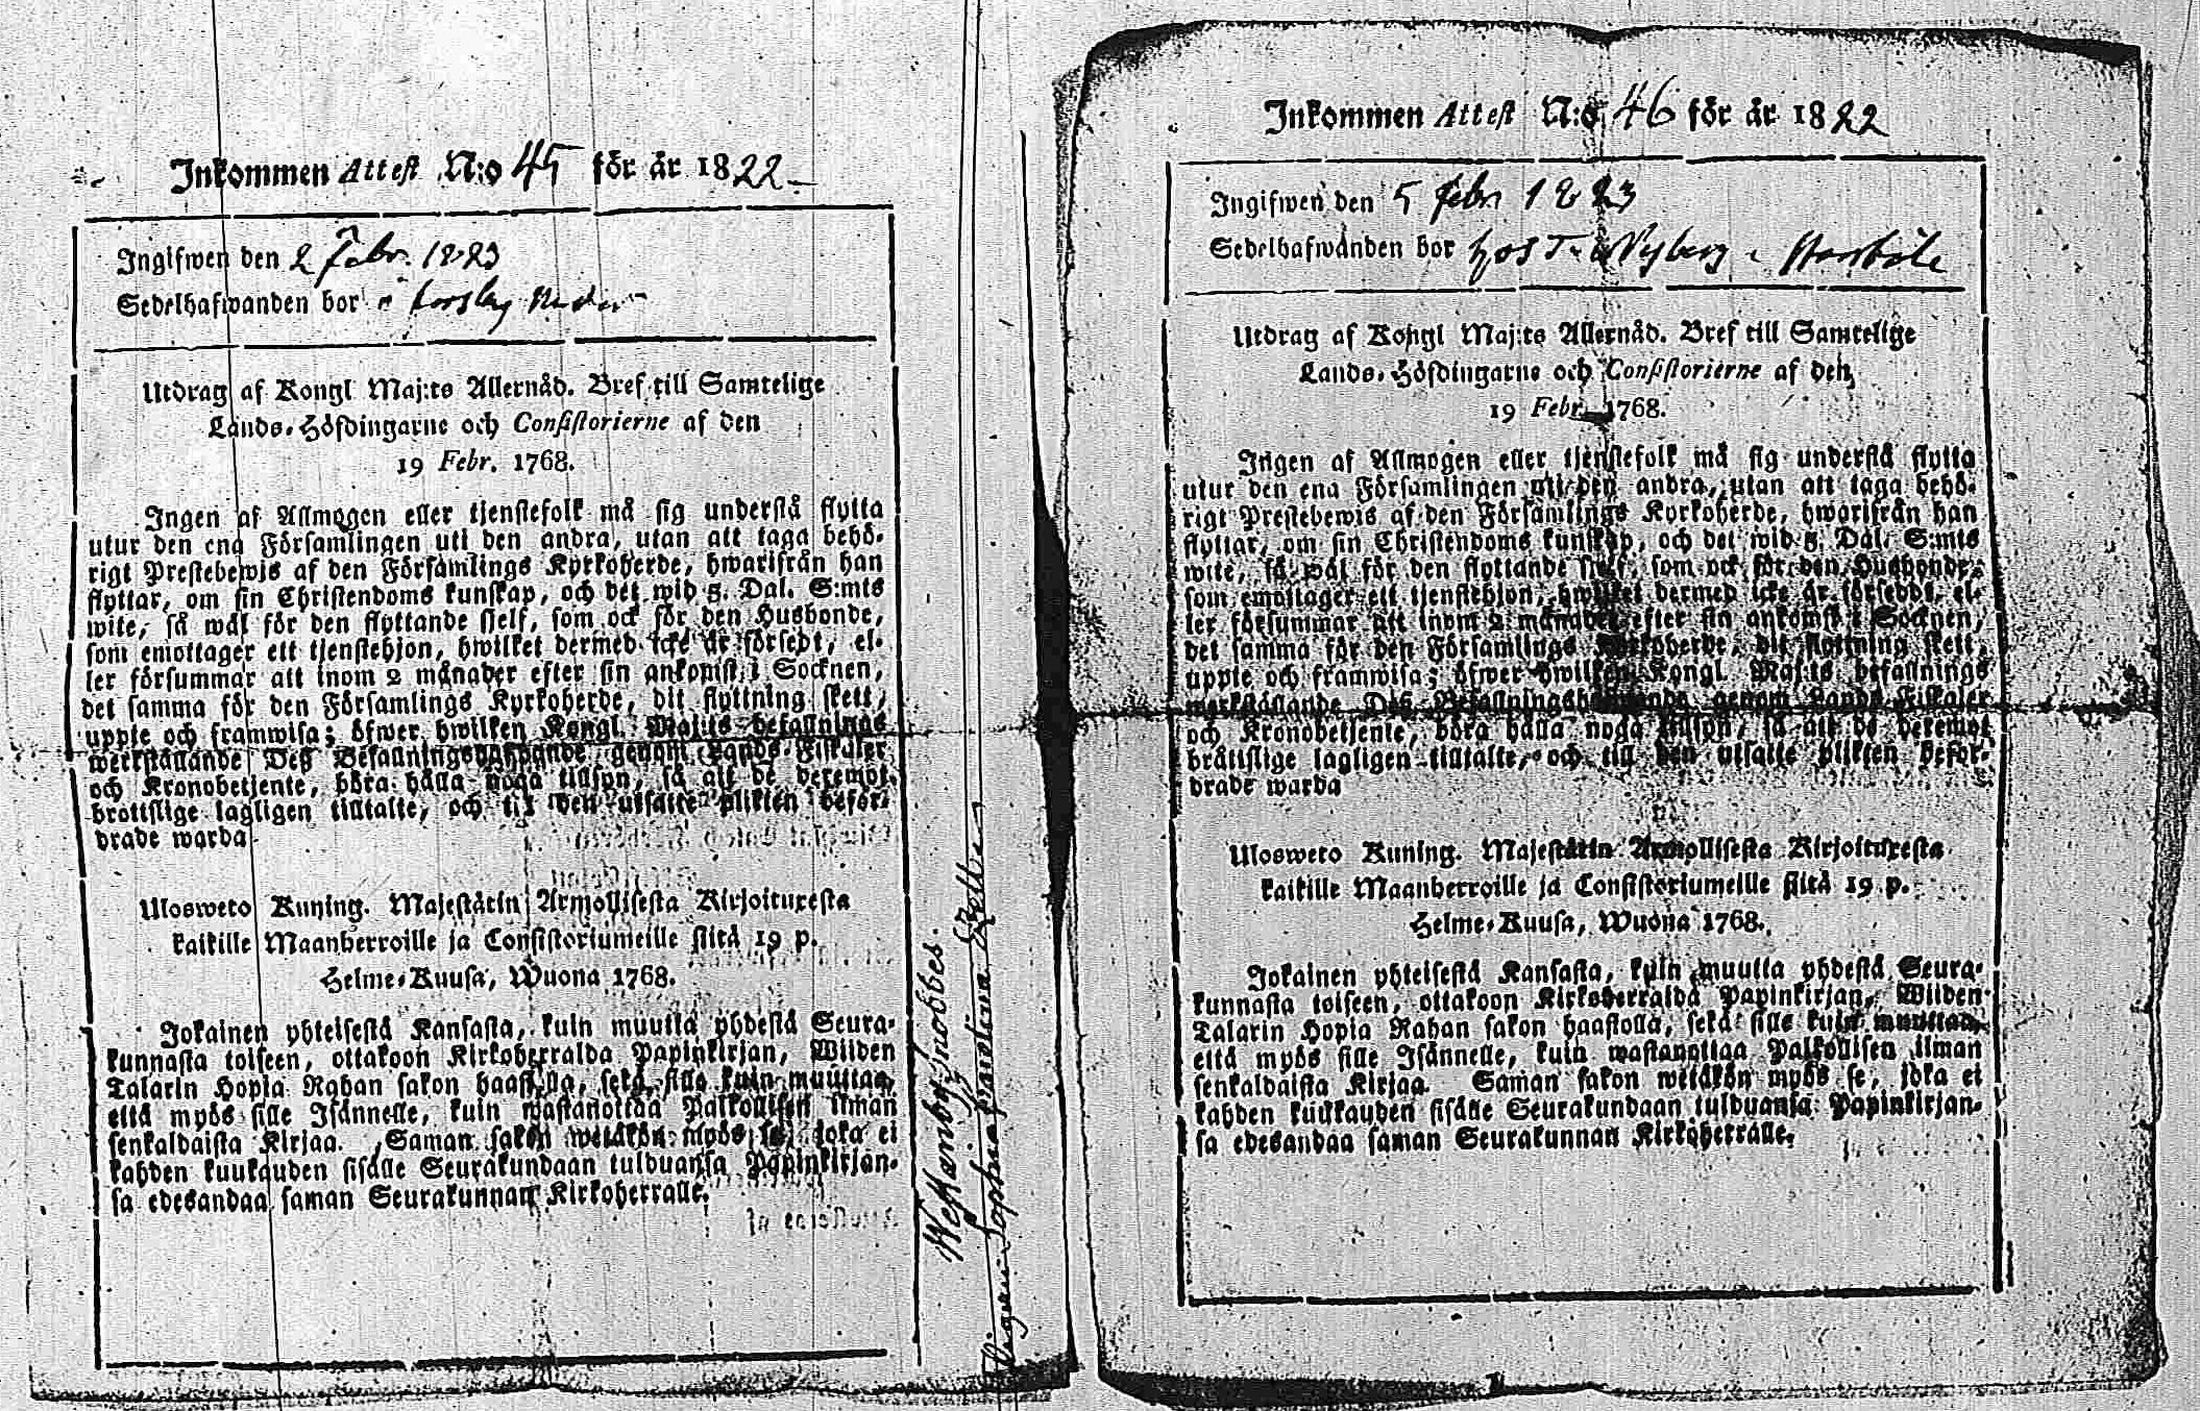 Inkommen Attest N:o 45 för år 1822
Ingifwen den 2 Febr. 1823
Sedelhafwanden bor
Utdrag af Kongl Maj:ts Allernåd. Bref till Samtelige
Lands-Höfdingarne och Consistorierne af den
19 Febr. 1768.
Ingen af Allmogen eller tjenstefolk må sig understå flytta
utur den ena Församlingen uti den andra, utan att taga behö-
rigt Prestebewis af den Församlings Kyrkoherde, hwarifrån han
flyttar, om sin Christendoms kunskap, och det wid 5. Dal. S:mts
wite, så wäl för den flyttande sjelf, som ock för den Husbonde,
som emottager ett tjenstehjon, hwilket dermed icke är försedt, el-
ler försummar att inom 2 månader efter sin ankomst i Socknen,
det samma för den Församlings Kyrkoherde, dit flyttning skett,
uppte och framwisa; öfwer hwilken Kongl. Maj:ts befallnings
werkställande Deß Befallningshafwande genom Lands-Fiskaler
och Kronobetjente, böra hålla noga tillsyn, så att de deremot
brottslige lagligen tilltalte, och till den utsatte plikten befor-
drade warda
Ulosweto Kuning. Majestätin Armollisesta Kirjoituxesta
kaikille Maanherroille ja Consistoriumeille siitä 19 p.
Helme-Kuusa, Wuona 1768.
Jokainen yhteisestä Kansasta, kuin muutta yhdestä Seura-
kunnasta toiseen, ottakoon Kirkoherralda Papinkirjan, Wiiden
Talarin Hopia Rahan sakon haastolla, sekä sille kuin muuttaa,
että myös sille Isännelle, kuin wastanottaa Palkollisen ilman
senkaldaista Kirjaa. Saman sakon wetäkön myös se, joka ei
kahden kuukauden sisälle Seurakundaan tulduansa Papinkirjan-
sa edesandaa saman Seurakunnan Kirkoherralle.
Westanby Snobbes.
Sophia Carolina
Inkommen Attest N:o 46 för år 1822
Ingifwen den 5 febr 1823
Sedelhafwanden bor hos Nyberg
Utdrag af Kongl Maj:ts Allernåd. Bref till Samtelige
Lands-Höfdingarne och Consistorierne af den
19 Febr. 1768.
Ingen af Allmogen eller tjenstefolk må sig understå flytta
utur den ena Församlingen uti den andra, utan att taga behö-
rigt Prestebewis af den Församlings Kyrkoherde, hwarifrån han
flyttar, om sin Christendoms kunskap, och det wid 5. Dal. S:mts
wite, så wäl för den flyttande sjelf, som ock för den Husbonde,
som emottager ett tjenstehjon, hwilket dermed icke är försedt, el-
ler försummar att inom 2 månader efter sin ankomst i Socknen,
det samma för den Församlings Kyrkoherde, dit flyttning skett,
uppte och framwisa; öfwer hwilken Kongl. Maj:ts befallnings
werkställande Deß Befallningshafwande genom Lands-Fiskaler
och Kronobetjente, böra hålla noga tillsyn, så att de deremot
bråttslige lagligen tilltalte, och till den utsatte plikten befor-
drade warda
Ulosweto Kuning. Majestätin Armollisesta Kirjoituxesta
kaikille Maanherroille ja Consistoriumeille siitä 19 p.
Helme-Kuusa, Wuona 1768.
Jokainen yhteisestä Kansasta, kuin muutta yhdestä Seura-
kunnasta toiseen, ottakoon Kirkoherralda Papinkirjan, Wiiden
Talarin Hopia Rahan sakon haastolla, sekä sille kuin muuttaa,
että myös sille Isännelle, kuin wastanottaa Palkollisen ilman
senkaldaista Kirjaa. Saman sakon wetäkön myös se, joka ei
kahden kuukauden sisälle Seurakundaan tulduansa Papinkirjan-
sa edesandaa saman Seurakunnan Kirkoherralle.